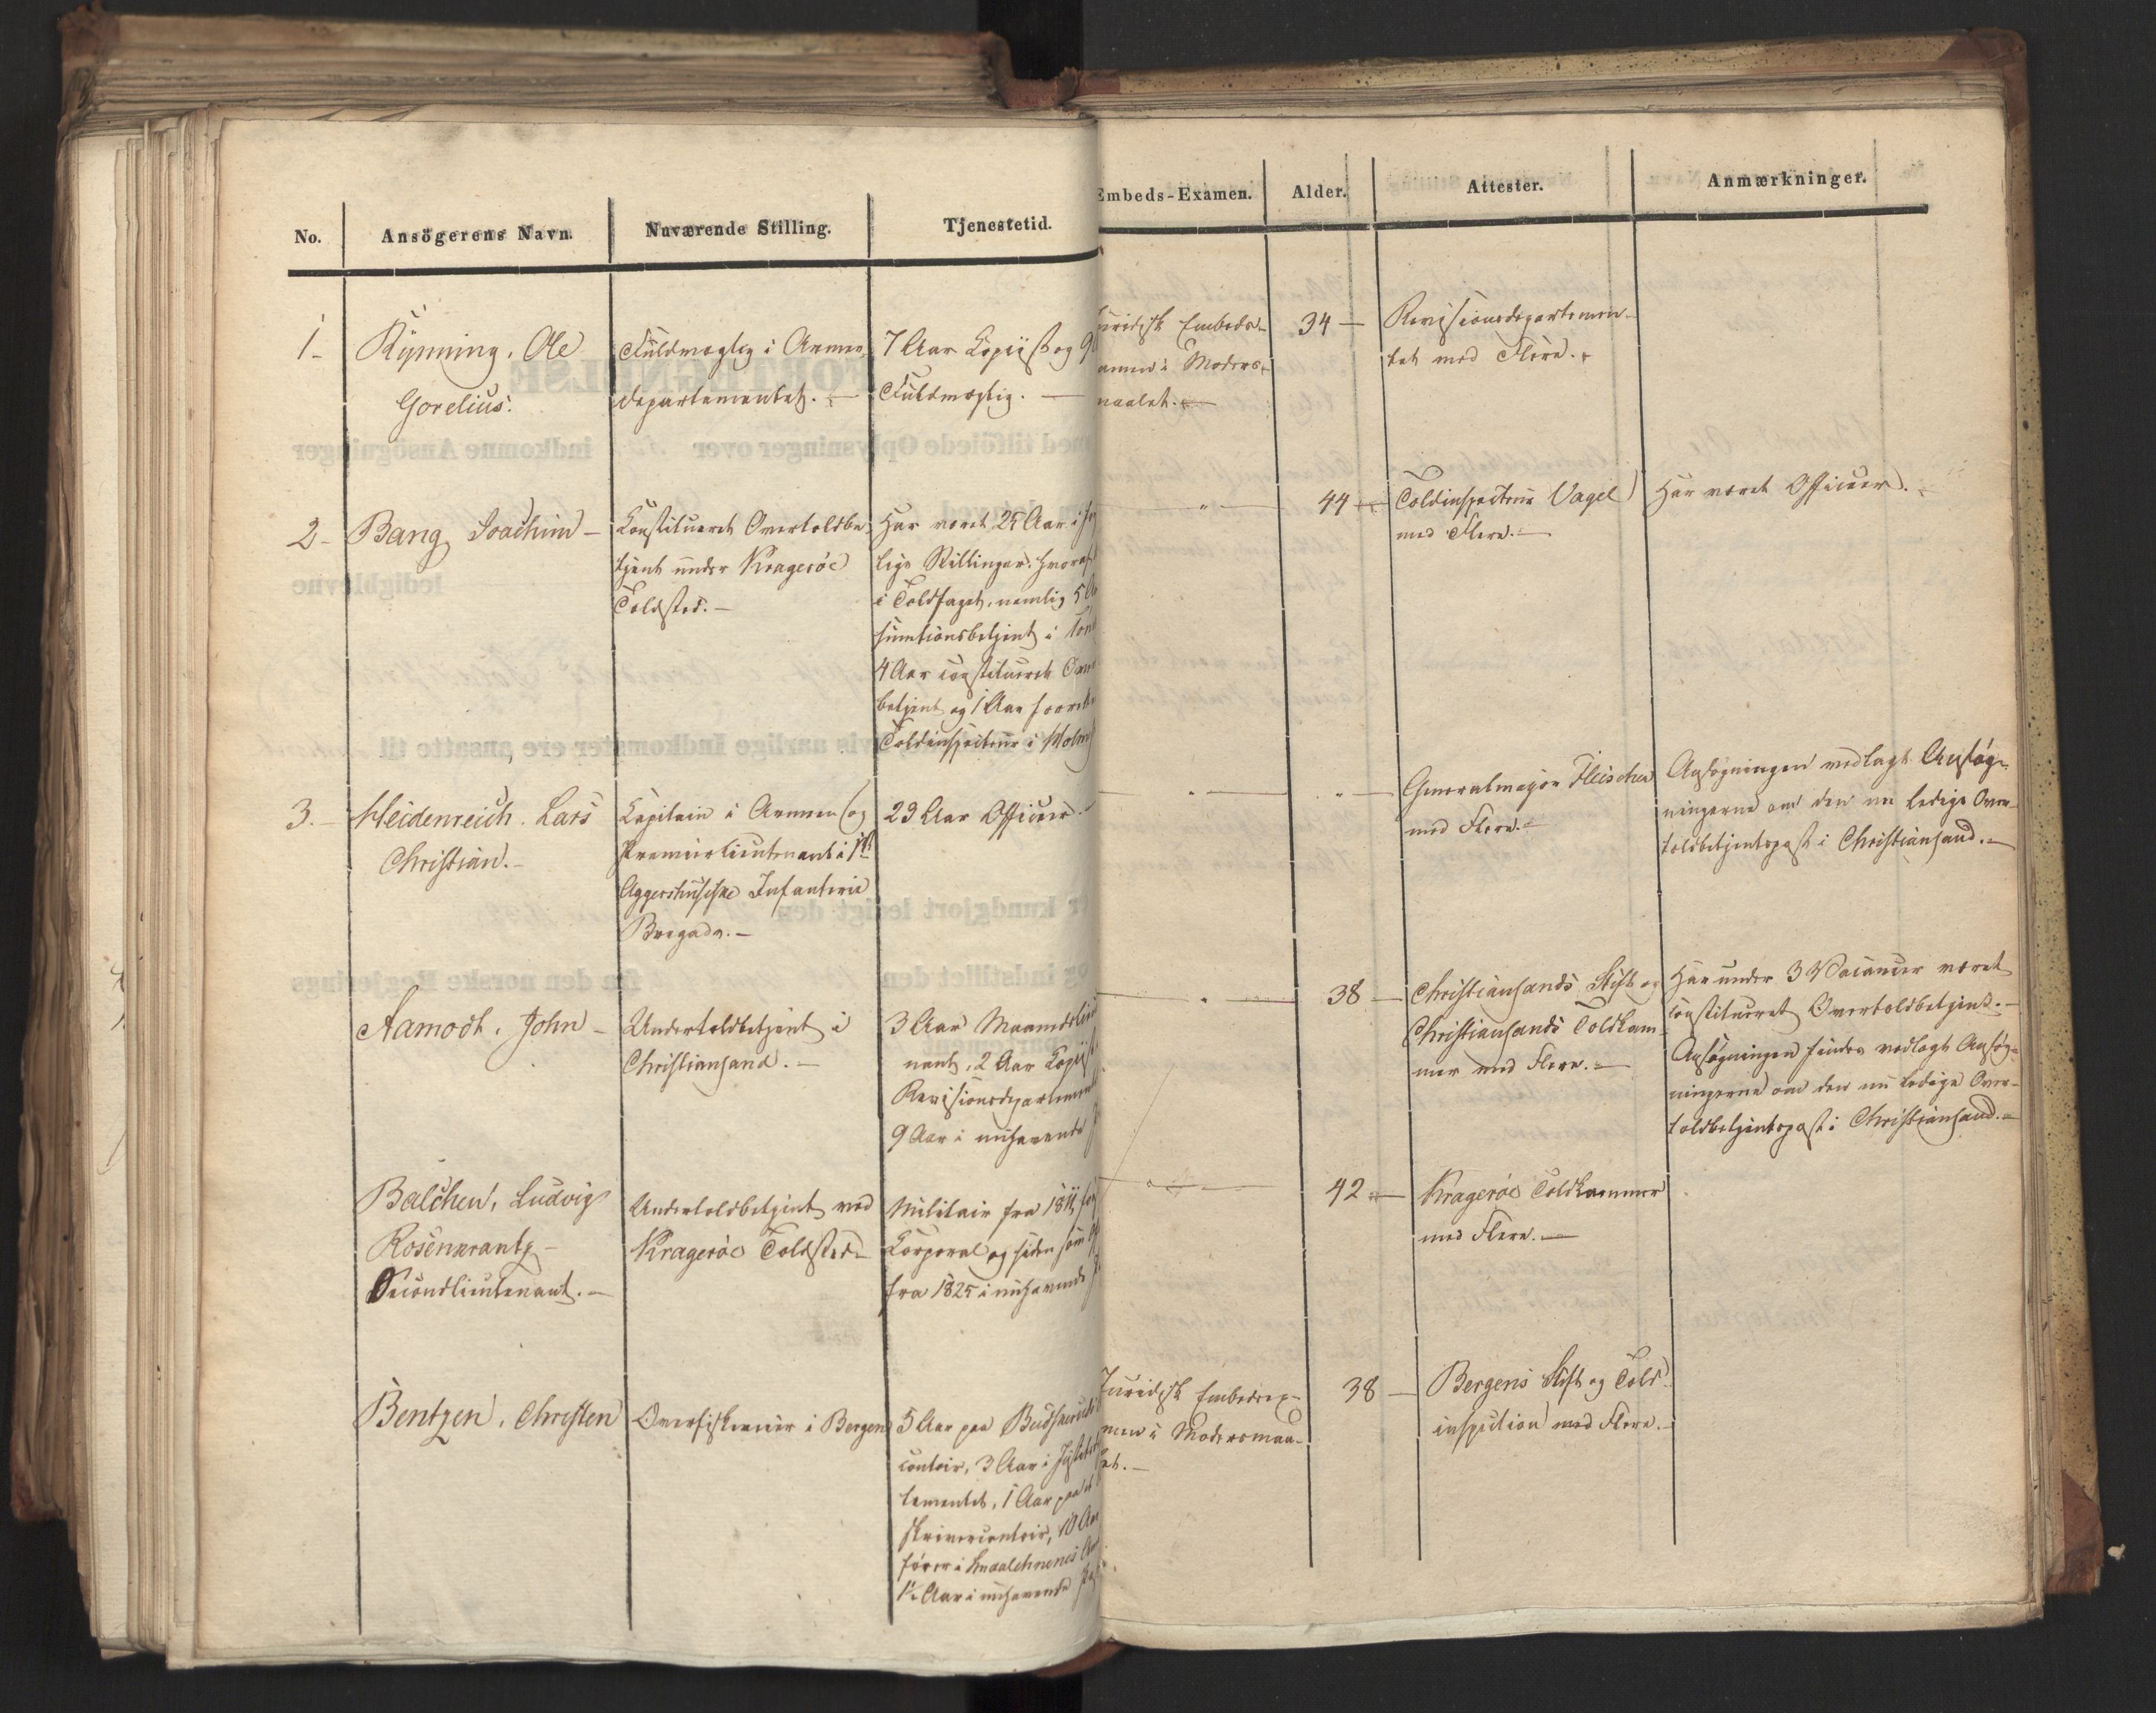 No.
Ansögerens Navn.
Nuværende Stilling.
Tjenestetid.
Embeds-Examen.
Alder.
Attester.
Anmærkninger.
1-
Rynning, Ole
Gorelius.
Fuldmægtig i Armee-
departementet. -
7 Aar Copiist og 9
Fuldmægtig. -
juridisk Embeds-
amen i Moders-
maalet. -
34 -
Revisionsdepartemen-
tet med Flere. -
2-
Bang, Joachim -
Constitueret Overtoldbe-
tjent under Kragerøe
Toldsted. -
Har været 25 Aar i
lige Stillinger, hvoraf
i Toldfaget, nemlig 5
sumtionsbetjent i
4 Aar constitueret
betjent og 1 Aar
Toldinspecteur i
- " -
44 -
Toldinspecteur Vagel
med Flere. -
Har været Officeer. -
3. -
Heidenreich, Lars
Christian. -
Capitain i Armeen (og
Premierlieutenant i 1ste
Aggershusiske Infanterie
Brigade. -
29 Aar Officier. -
- " -
" -
Generalmajor Fleischer
med Flere. -
Ansøgningen vedlagt Ansøg-
ningerne om den nu ledige Over-
toldbetjentspost i Christiansand. -
Aamodt, John -
Undertoldbetjent i
Christiansand. -
3 Aar
nant, 2 Aar Copiist
Revisionsdepartement
9 Aar i nuhavende
- " -
38 -
Christiansands Stift og
Christiansands Toldkam-
mer med Flere. -
Har under 3 Vacancer været
constitueret Overtoldbetjent. -
Ansøgningen findes vedlagt Ansøg-
ningerne om den nu ledige Over-
toldbetjentspost i Christiansand. -
Balchen, Ludvig
Rosenkrantz -
Secondlieutenant. -
Undertoldbetjent ved
Kragerøe Toldsted -
Militair fra 1811,
Corporal og siden som
fra 1825 i nuhavende
- " -
42 -
Kragerøe Toldkammer
med Flere. -
Bentzen, Christen
Overfiskecier i Bergen
5 Aar paa Budskerud
contoir, 3 Aar i
tementet, 1 Aar paa
skrivercontoir, 10 Aar
fører i Smaalehnenes
1½ Aar i nuhavende
Juridisk Embedsex-
men i Modersmaa-
let. -
38 -
Bergens Stift og Told-
inspection med Flere. -